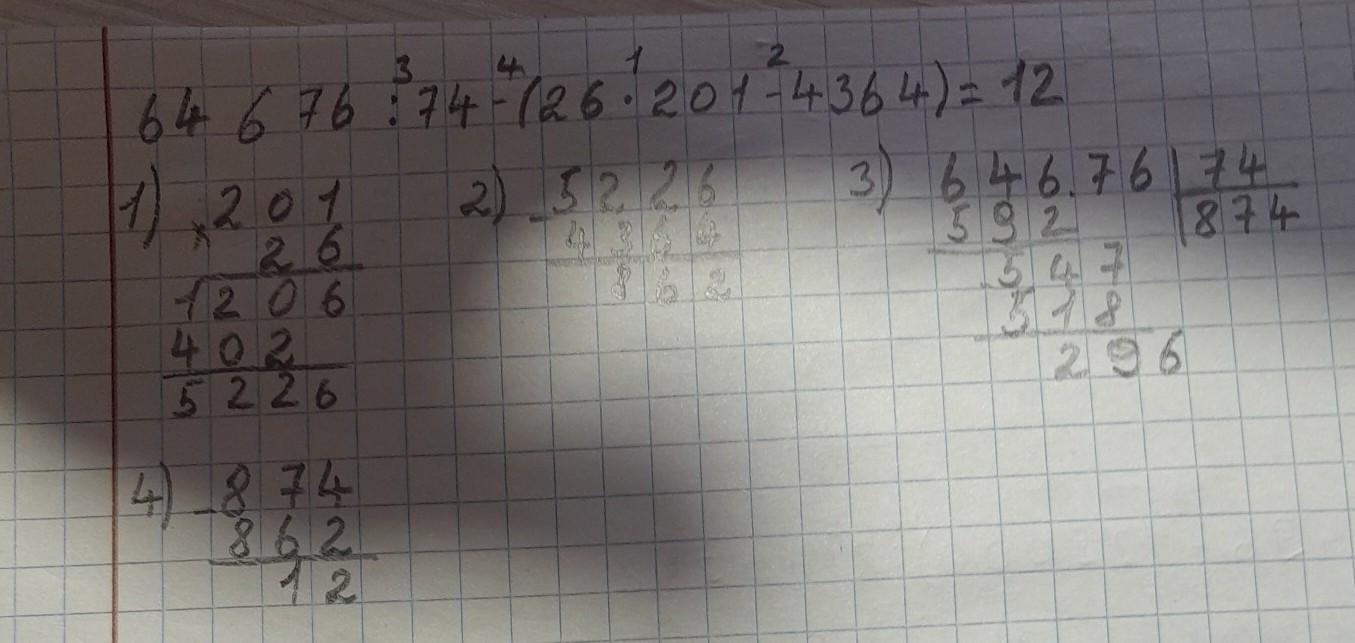 3 4 1 2
64 676 : 74 - (26 · 201 - 4364) = 12
1) × 201
26
1206
402
5226
2) - 5226
4364
862
3) 646.76 | 74
592 | 874
547
518
296
4) - 874
862
12